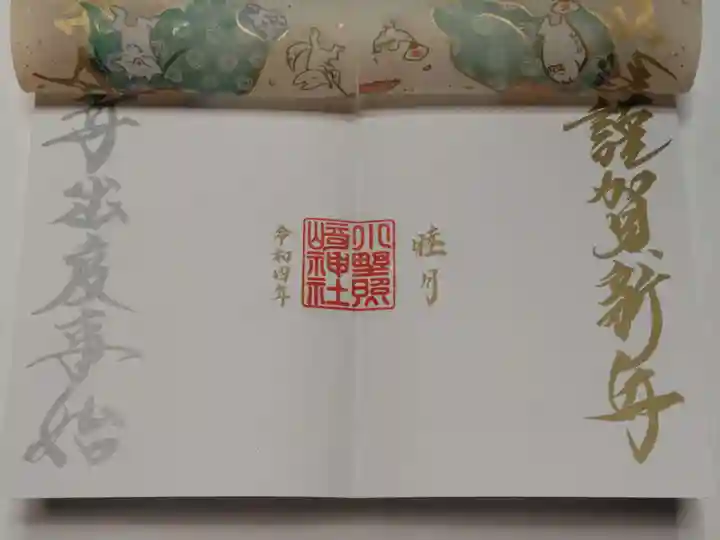 謹賀新年
睦月
小野照
崎神社
令和四年
芽出度事始